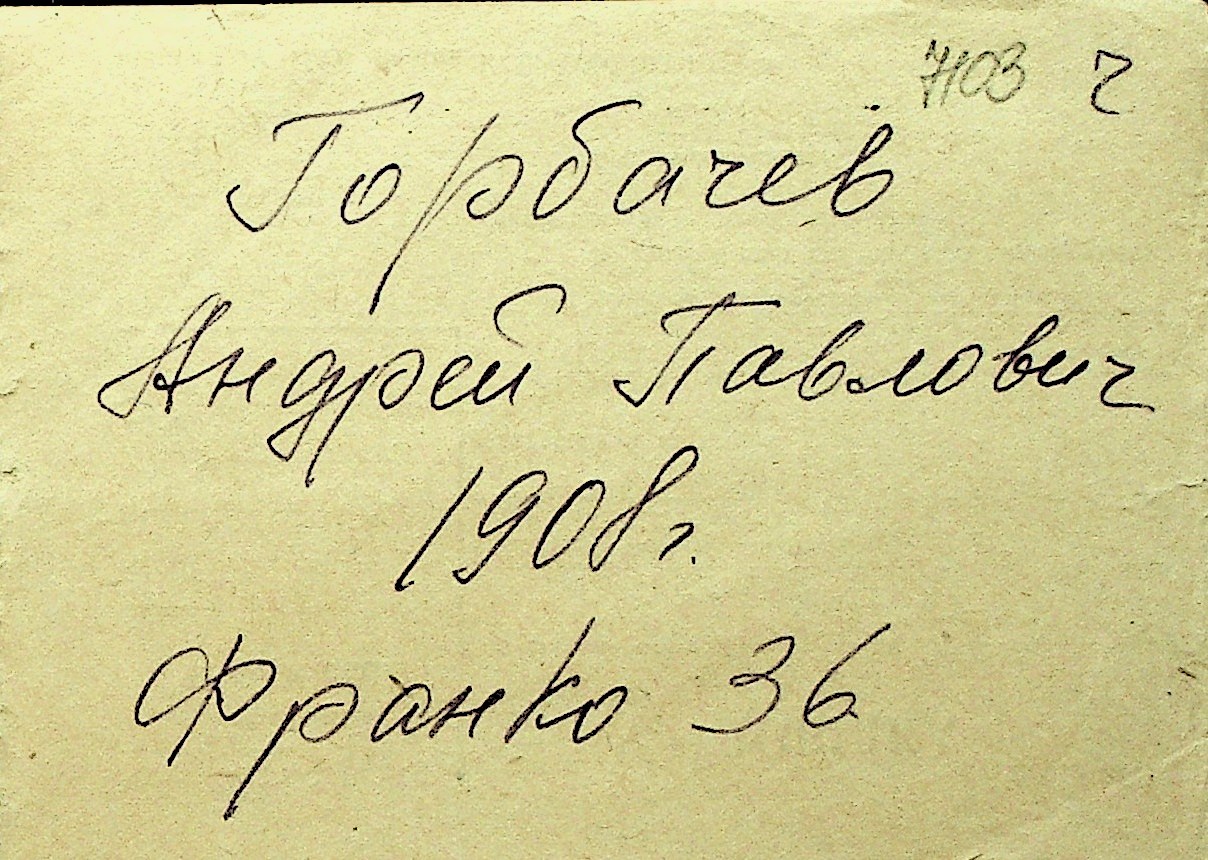 7103 ч
Горбачев
Андрей Павлович
1908г.
Франко 36